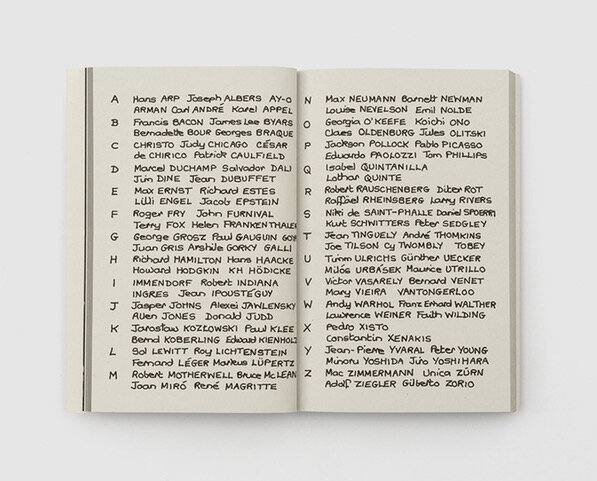 A Hans ARP Joseph ALBERS AY-O
ARMAN Carl ANDRÉ Karel APPEL
B Francis BACON James Lee BYARS
Bernadette BOUR Georges BRAQUE
C CHRISTO Judy CHICAGO CÉSAR
de CHIRICO Patrick CAULFIELD
D Marcel DUCHAMP Salvador DALI
Jim DINE Jean DUBUFFET
E Max ERNST Richard ESTES
Lilli ENGEL Jacob EPSTEIN
F Roger FRY John FURNIVAL
Terry FOX Helen FRANKENTHALER
G George GROSZ Paul GAUGUIN
Juan GRIS Arshile GORKY GALLI
H Richard HAMILTON Hans HAACKE
Howard HODGKIN KH HÖDICKE
I IMMENDORF Robert INDIANA
INGRES Jean IPOUSTÉGUY
J Jasper JOHNS Alexei JAWLENSKY
Allen JONES Donald JUDD
K Jarosław KOZŁOWSKI Paul KLEE
Bernd KOBERLING Edward KIENHOLZ
L Sol LEWITT Roy LICHTENSTEIN
Fernand LÉGER Markus LÜPERTZ
M Robert MOTHERWELL Bruce McLEAN
Joan MIRÓ René MAGRITTE
N Max NEUMANN Barnett NEWMAN
Louise NEVELSON Emil NOLDE
O Georgia O'KEEFE Koichi ONO
Claes OLDENBURG Jules OLITSKI
P Jackson POLLOCK Pablo PICASSO
Eduardo PAOLOZZI Tom PHILLIPS
Q Isabel QUINTANILLA
Lothar QUINTE
R Robert RAUSCHENBERG Diter ROT
Raffael RHEINSBERG Larry RIVERS
S Niki de SAINT-PHALLE Daniel SPOERRI
Kurt SCHWITTERS Peter SEDGLEY
T Jean TINGUELY André THOMKINS
Joe TILSON Cy TWOMBLY TOBEY
U Timm ULRICHS Günther UECKER
Milós URBÁSEK Maurice UTRILLO
V Victor VASARELY Bernard VENET
Mary VIEIRA VANTONGERLOO
W Andy WARHOL Franz Erhard WALTHER
Lawrence WEINER Faith WILDING
X Pedro XISTO
Constantin XENAKIS
Y Jean-Pierre YVARAL Peter YOUNG
Minoru YOSHIDA Jiro YOSHIHARA
Z Mac ZIMMERMANN Unica ZÜRN
Adolf ZIEGLER Gilberto ZORIO